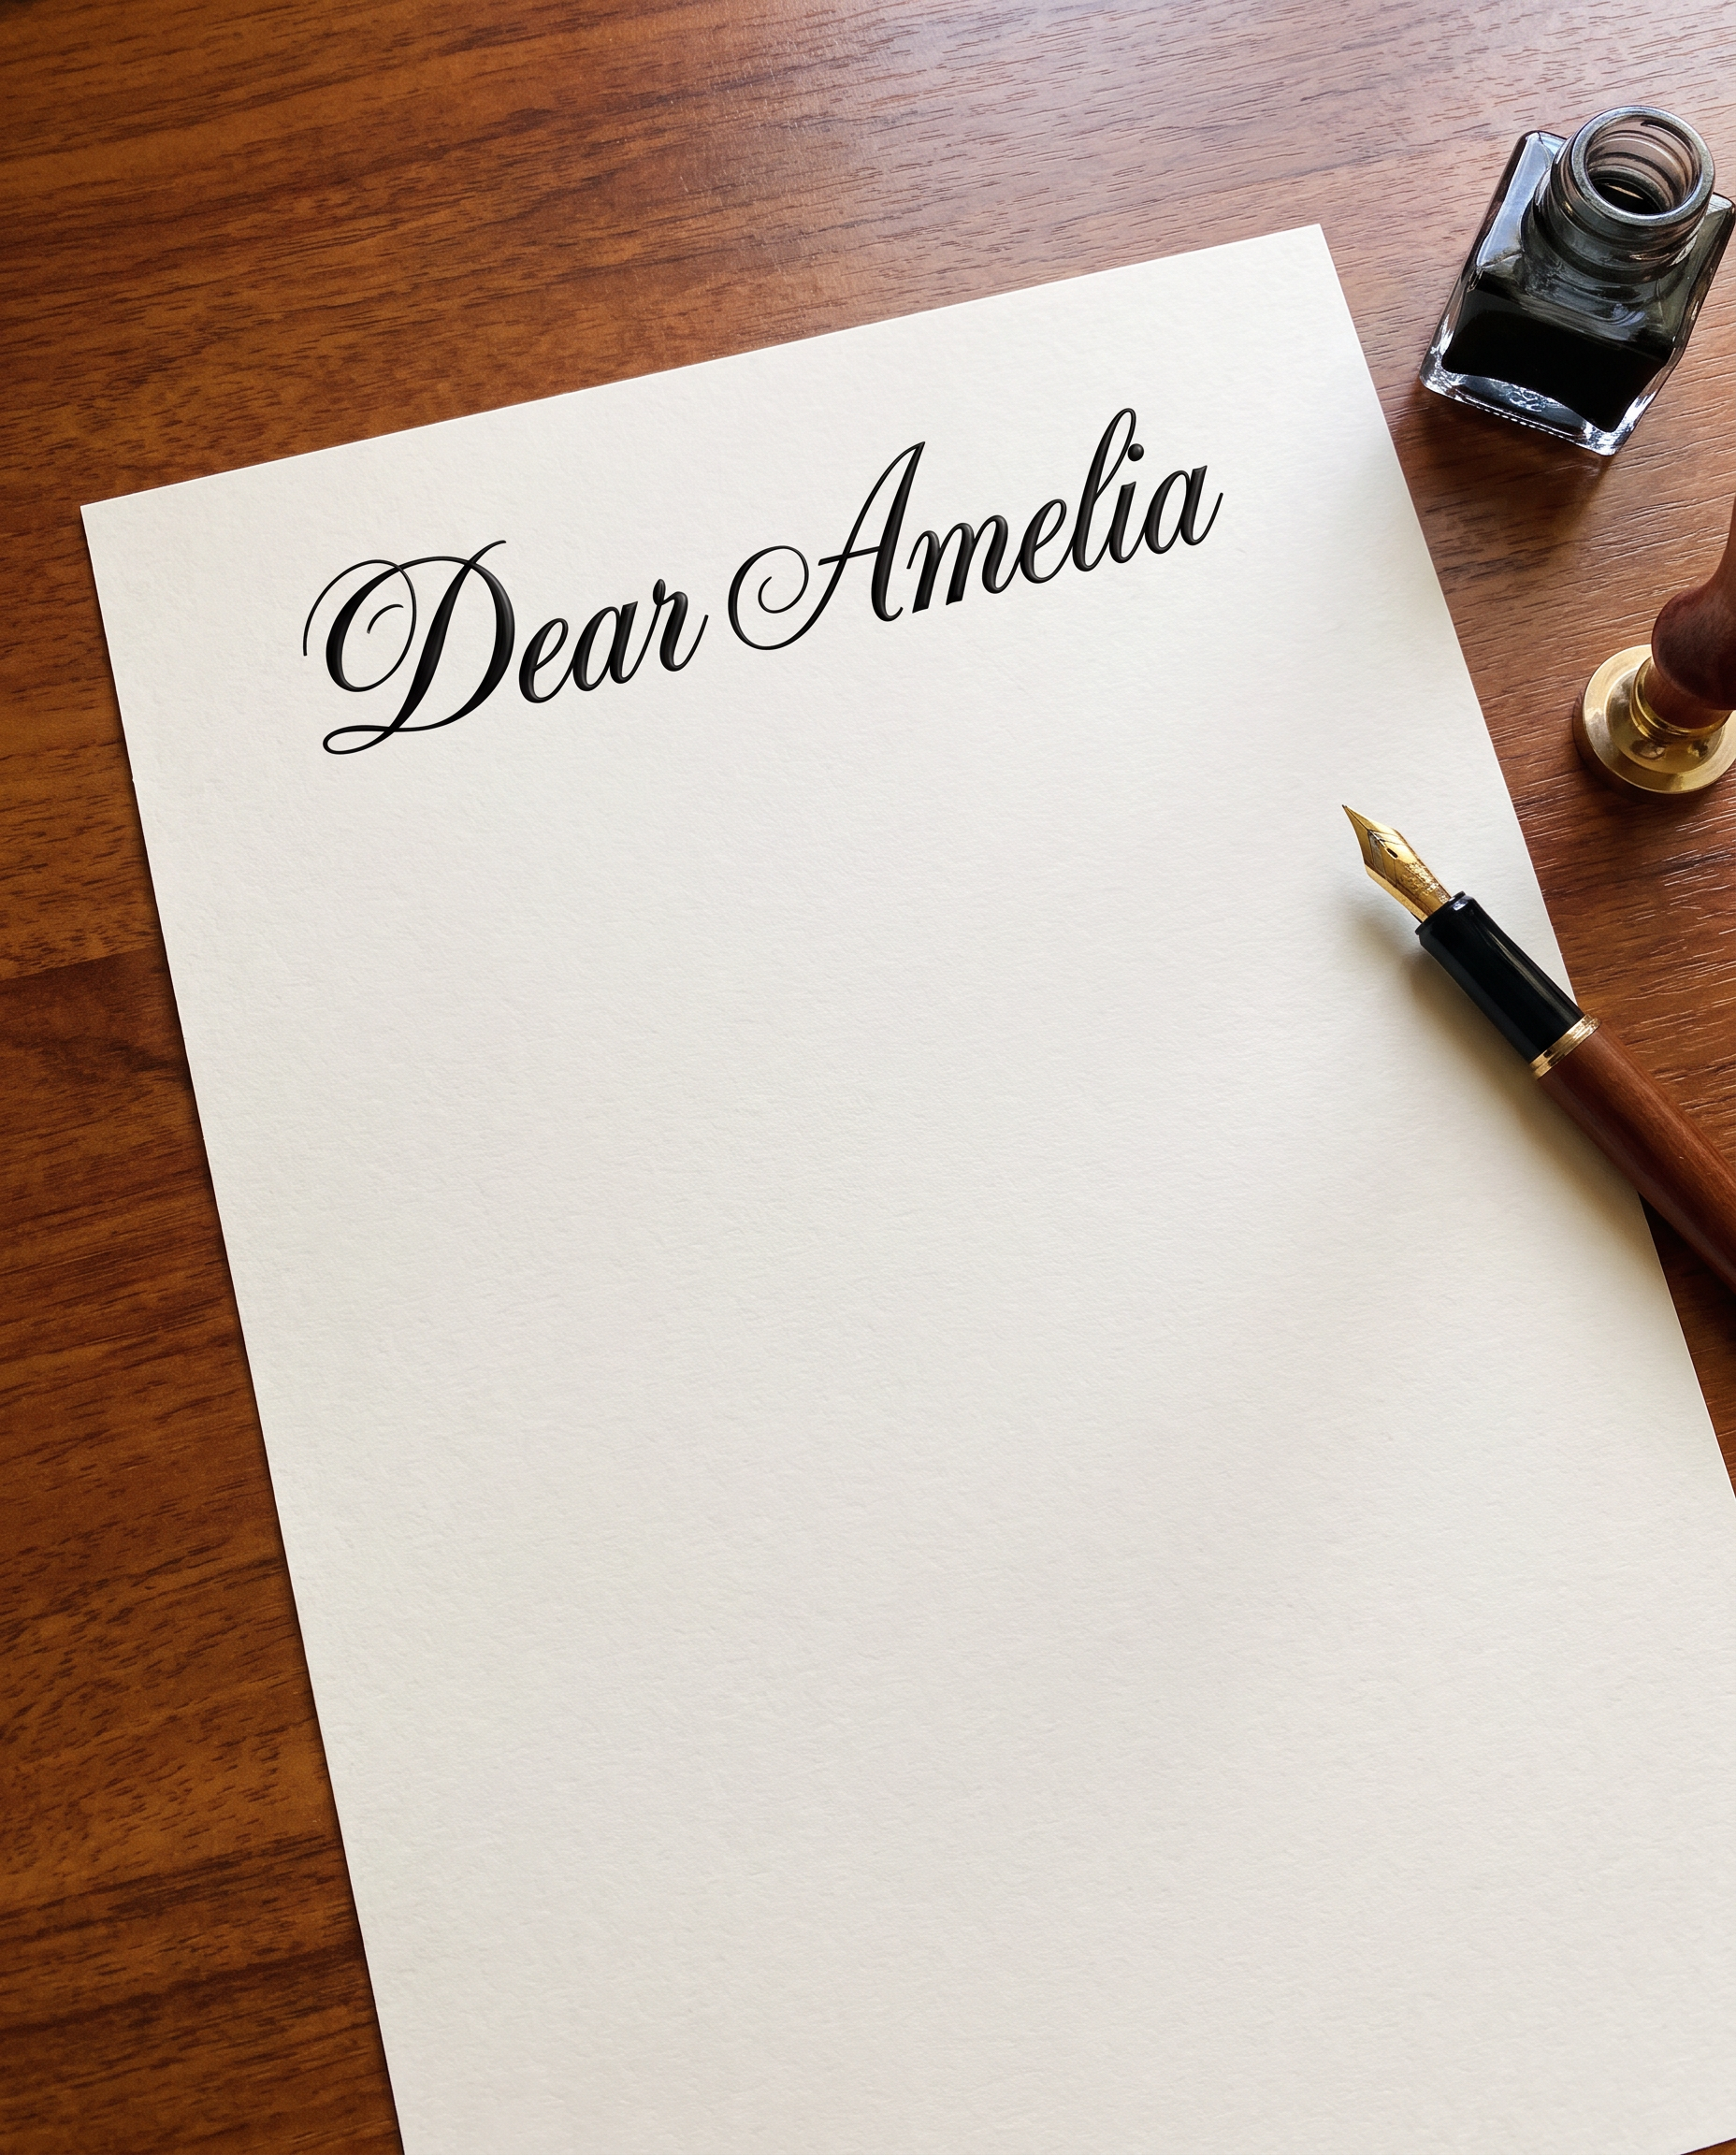 Dear Amelia